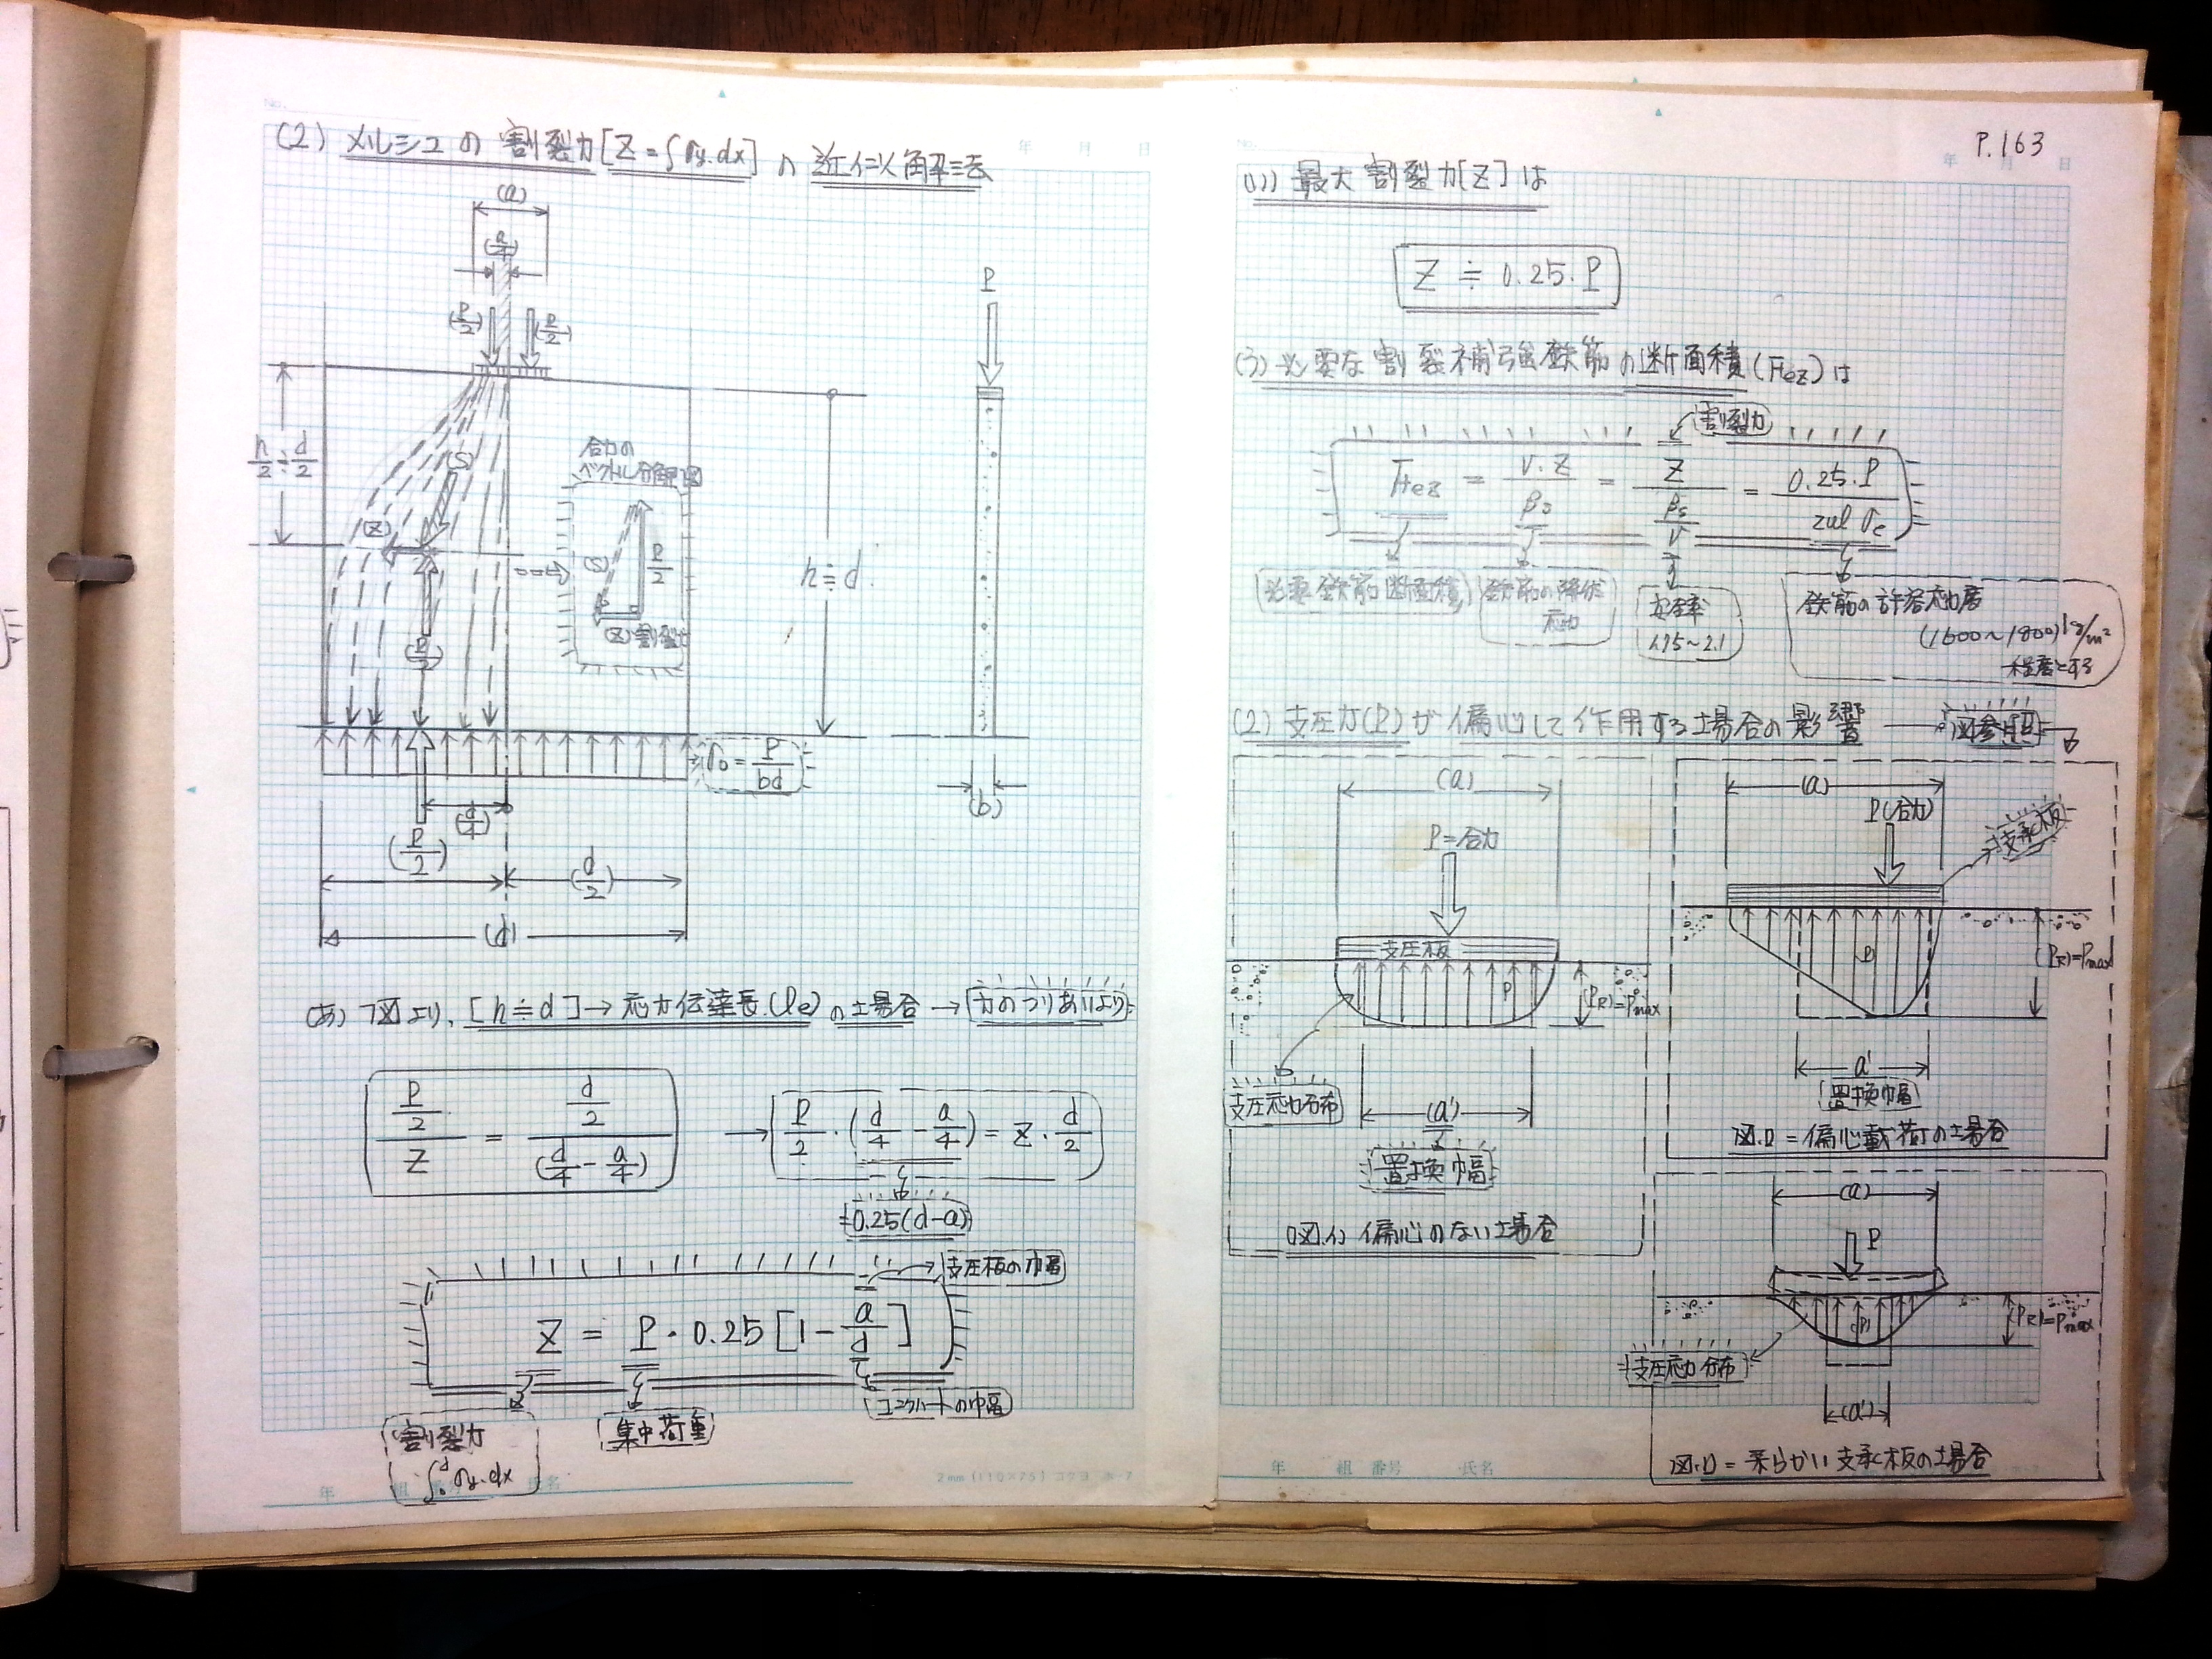 (2) メルシュの割裂力[Z=∫σy.dx]の近似解法
(a)
(a/4)
(P/2)
(P/2)
P
h/2≒d/2
(S)
(Z)
合力の
ベクトル分解図
(S)
P/2
(Z)割裂力
(P/2)
h≒d
σo=P/bd
(b)
(d/4)
(P/2)
(d/2)
(d)
(あ) 図より、[h≒d]→応力伝達長.(le)の場合→力のつりあいより
P/2 / Z = d/2 / (d/4-a/4) → P/2・(d/4-a/4)=Z・d/2
=0.25(d-a)
支圧板の巾
Z = P・0.25[1-a/d]
コンクリートの巾
割裂力
∫₀ᵈσy.dx
集中荷重
年 組 番号 氏名
2mm(110×75) コクヨ ホ-7
No.
年 月 日
P.163
年 月 日
(い) 最大割裂力[Z]は
Z≒0.25.P
(う) 必要な割裂補強鉄筋の断面積(Fez)は
割裂力
Fez = ν.Z/βs = Z/(βs/ν) = 0.25.P/zul σe
必要鉄筋断面積
鉄筋の降伏
応力
安全率
1.75~2.1
鉄筋の許容応力度
(1600~1800)kg/m²
程度とする
(2) 支圧力(P)が偏心して作用する場合の影響
図参照
(a)
P=合力
支圧板
P
(PR)=Pmax
支圧応力分布
(a')
置換幅
図.イ) 偏心のない場合
(a)
P(合力)
支承板
P
(PR)=Pmax
a'
置換幅
図.ロ=偏心載荷の場合
(a)
P
(P)
(PR)=Pmax
支圧応力分布
(a')
=柔らかい支承板の場合
年 組 番号 氏名